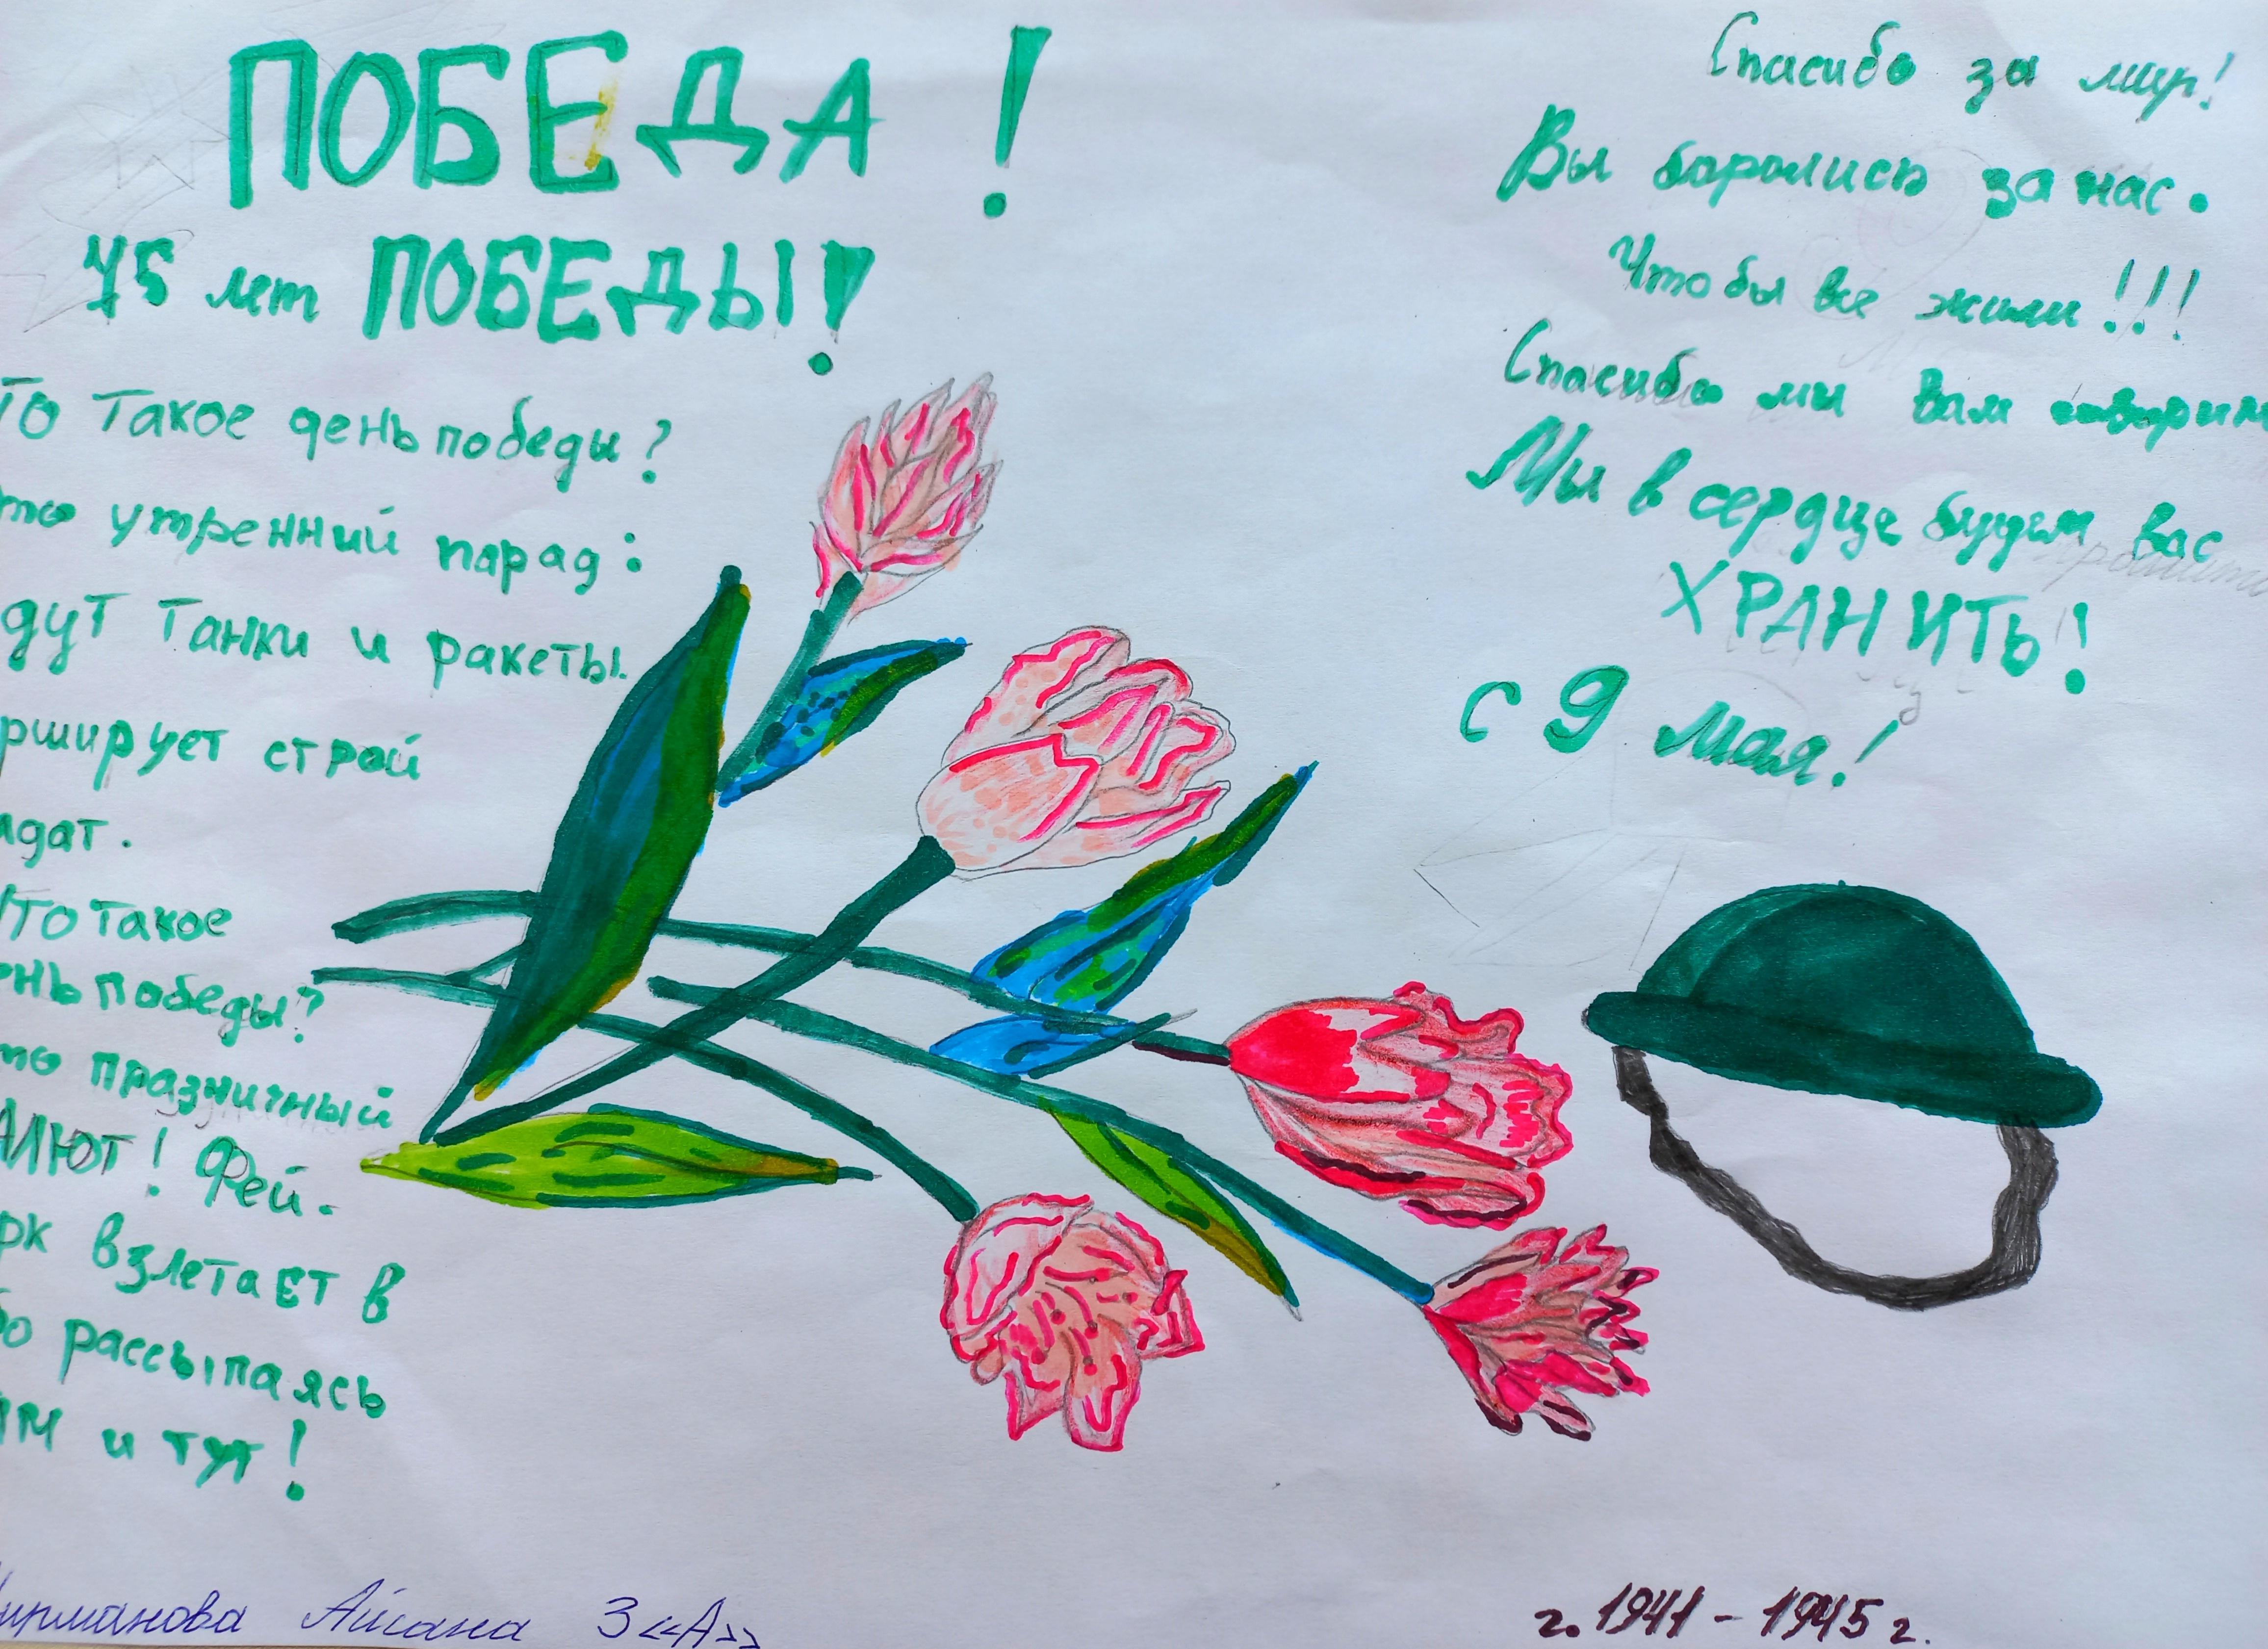 ПОБЕДА!
75 лет ПОБЕДЫ!
ТО Такое день победы?
то утренний парад:
дут Танки и ракеты.
рширует строй
лдат.
то такое
ень победы?
то празничный
АЛЮТ! Фей-
рк взлетает в
бо рассыпаясь
ам и тут!
Спасибо за мир!
Вы боролись за нас.
Чтобы все жили!!!
Спасибо мы вам говорим
Мы в сердце будем вас
ХРАНИТЬ!
с 9 мая!
ирманова 3 «А»
г. 1941 - 1945 г.